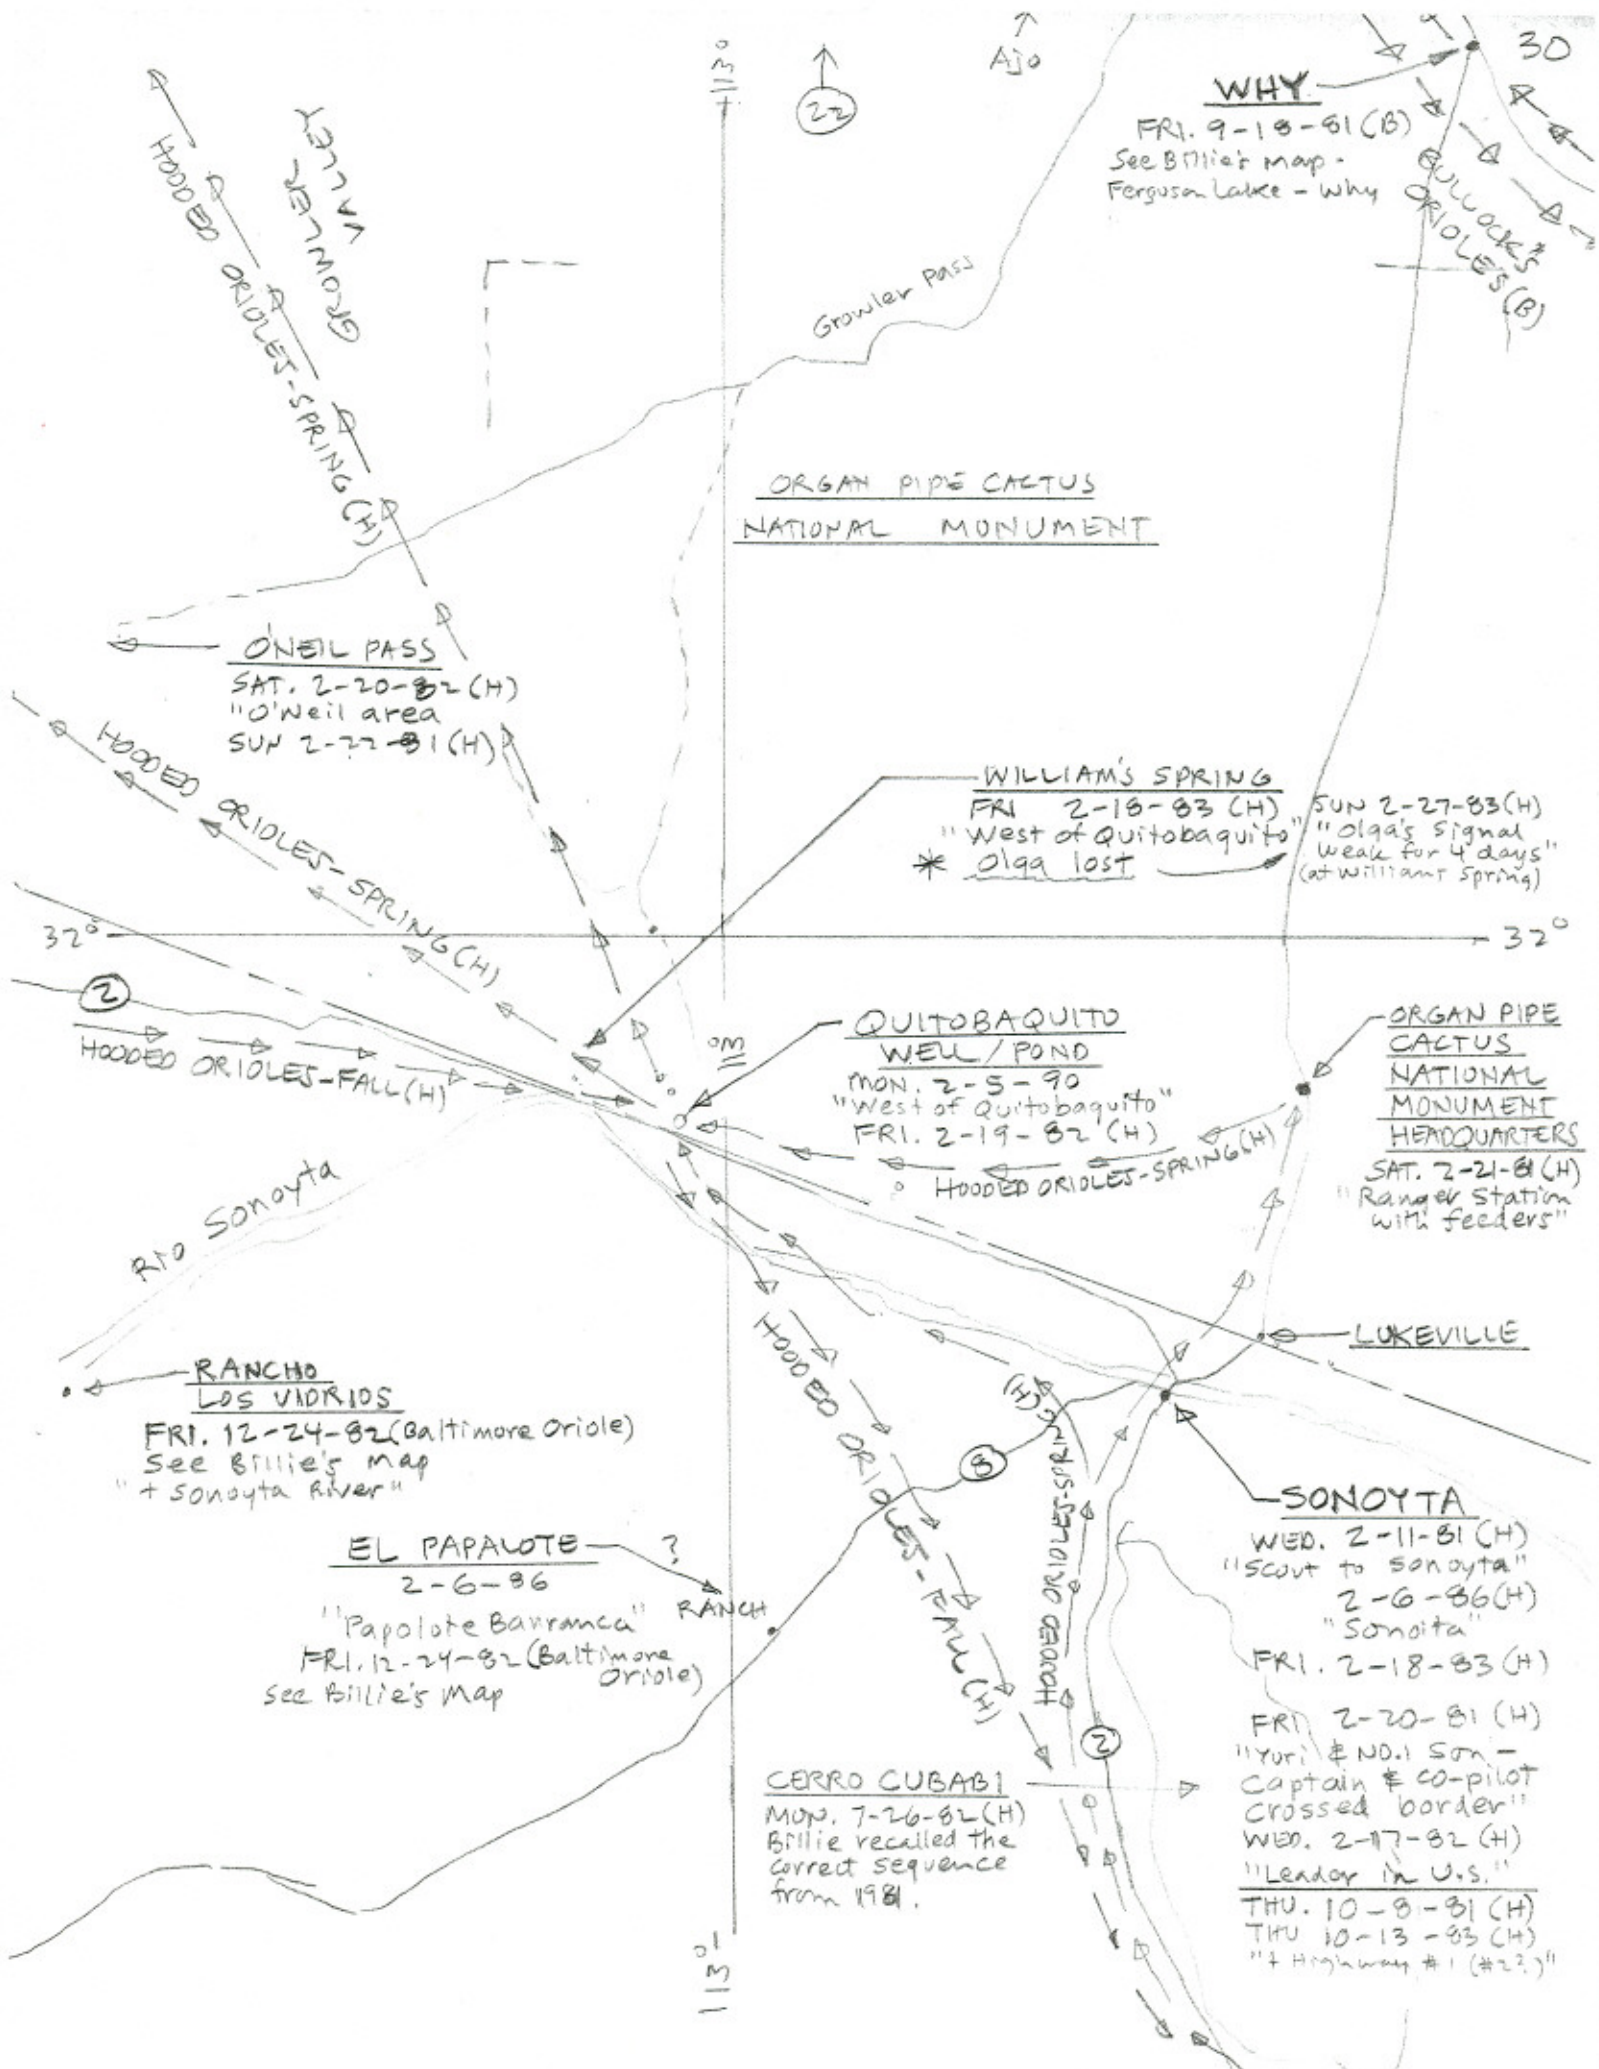 30
113°
22
Ajo
WHY
FRI. 9-18-81 (B)
See Billie's map -
Ferguson Lake - Why
BULLOCK'S
ORIOLES (B)
GROWLER
VALLEY
HOODED ORIOLES-SPRING (H)
Growler Pass
ORGAN PIPE CACTUS
NATIONAL MONUMENT
O'NEIL PASS
SAT. 2-20-82 (H)
"O'Neil area
SUN 2-22-81 (H)
HOODED ORIOLES-SPRING (H)
WILLIAM'S SPRING
FRI 2-18-83 (H)
"West of Quitobaquito"
* Olga lost
SUN 2-27-83 (H)
"Olga's Signal
weak for 4 days"
(at Williams Spring)
32°
32°
2
HOODED ORIOLES-FALL (H)
113°
QUITOBAQUITO
WELL/POND
MON. 2-5-90
"West of Quitobaquito"
FRI. 2-19-82 (H)
HOODED ORIOLES-SPRING (H)
ORGAN PIPE
CACTUS
NATIONAL
MONUMENT
HEADQUARTERS
SAT. 2-21-81 (H)
"Ranger Station
with feeders"
RIO Sonoyta
LUKEVILLE
RANCHO
LOS VIDRIOS
FRI. 12-24-82 (Baltimore Oriole)
See Billie's Map
"+ Sonoyta River"
HOODED ORIOLES-FALL (H)
HOODED ORIOLES-SPRING (H)
8
EL PAPALOTE
2-6-86
"Papolote Barranca"
FRI. 12-24-82 (Baltimore
Oriole)
See Billie's Map
?
RANCH
SONOYTA
WED. 2-11-81 (H)
"Scout to Sonoyta"
2-6-86 (H)
"Sonoita"
FRI. 2-18-83 (H)
FRI 2-20-81 (H)
"Yuri & NO.1 Son -
Captain & co-pilot
crossed border"
WED. 2-17-82 (H)
"Leader in U.S."
THU. 10-8-81 (H)
THU 10-13-83 (H)
"+ Highway #1 (#2?)"
2
CERRO CUBABI
MON. 7-26-82 (H)
Billie recalled the
correct sequence
from 1981.
113°